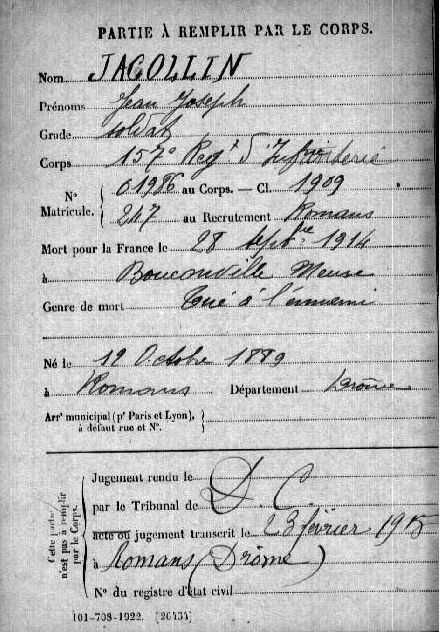 PARTIE À REMPLIR PAR LE CORPS.
Nom JAGOLLIN
Prénoms Jean Joseph
Grade soldat
Corps 157e Regt d'Infanterie
N° Matricule. 01986 au Corps. — Cl. 1909
247 au Recrutement Romans
Mort pour la France le 28 septbre 1914
à Bouconville Meuse
Genre de mort Tué à l'ennemi
Né le 12 Octobre 1889
à Romans Département Drôme
Arrt municipal (pr Paris et Lyon),
à défaut rue et N°.
Cette partie n'est pas à remplir par le Corps.
Jugement rendu le
par le Tribunal de D. C.
acte ou jugement transcrit le 23 février 1915
à Romans (Drôme)
N° du registre d'état civil
101-708-1922. [26434]